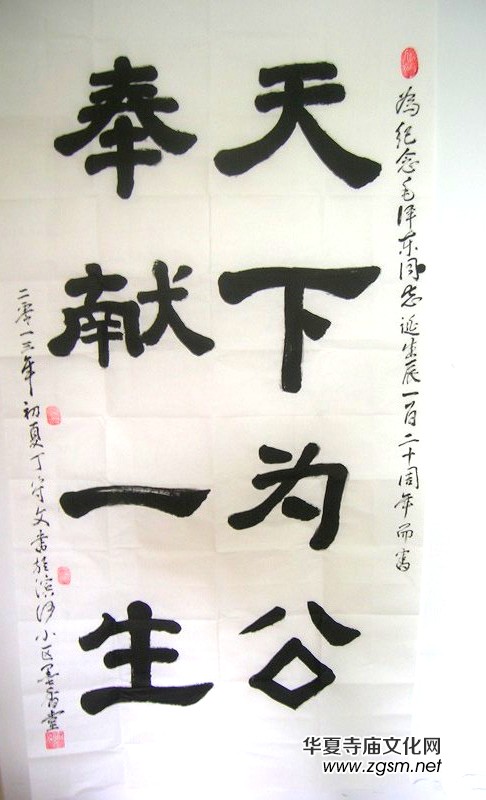 为纪念毛泽东同志诞生辰一百二十周年而书
天下为公
奉献一生
二零一三年初夏丁守文书於滨河小区墨香堂
华夏寺庙文化网
www.zgsm.net